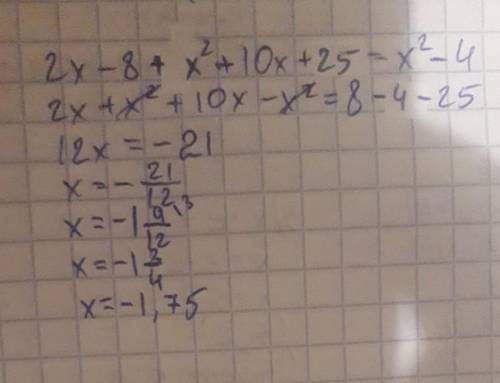 2x - 8 + x² + 10x + 25 = x² - 4
2x + x² + 10x - x² = 8 - 4 - 25
12x = -21
x = -21/12
x = -1 9/12 \3
x = -1 3/4
x = -1,75